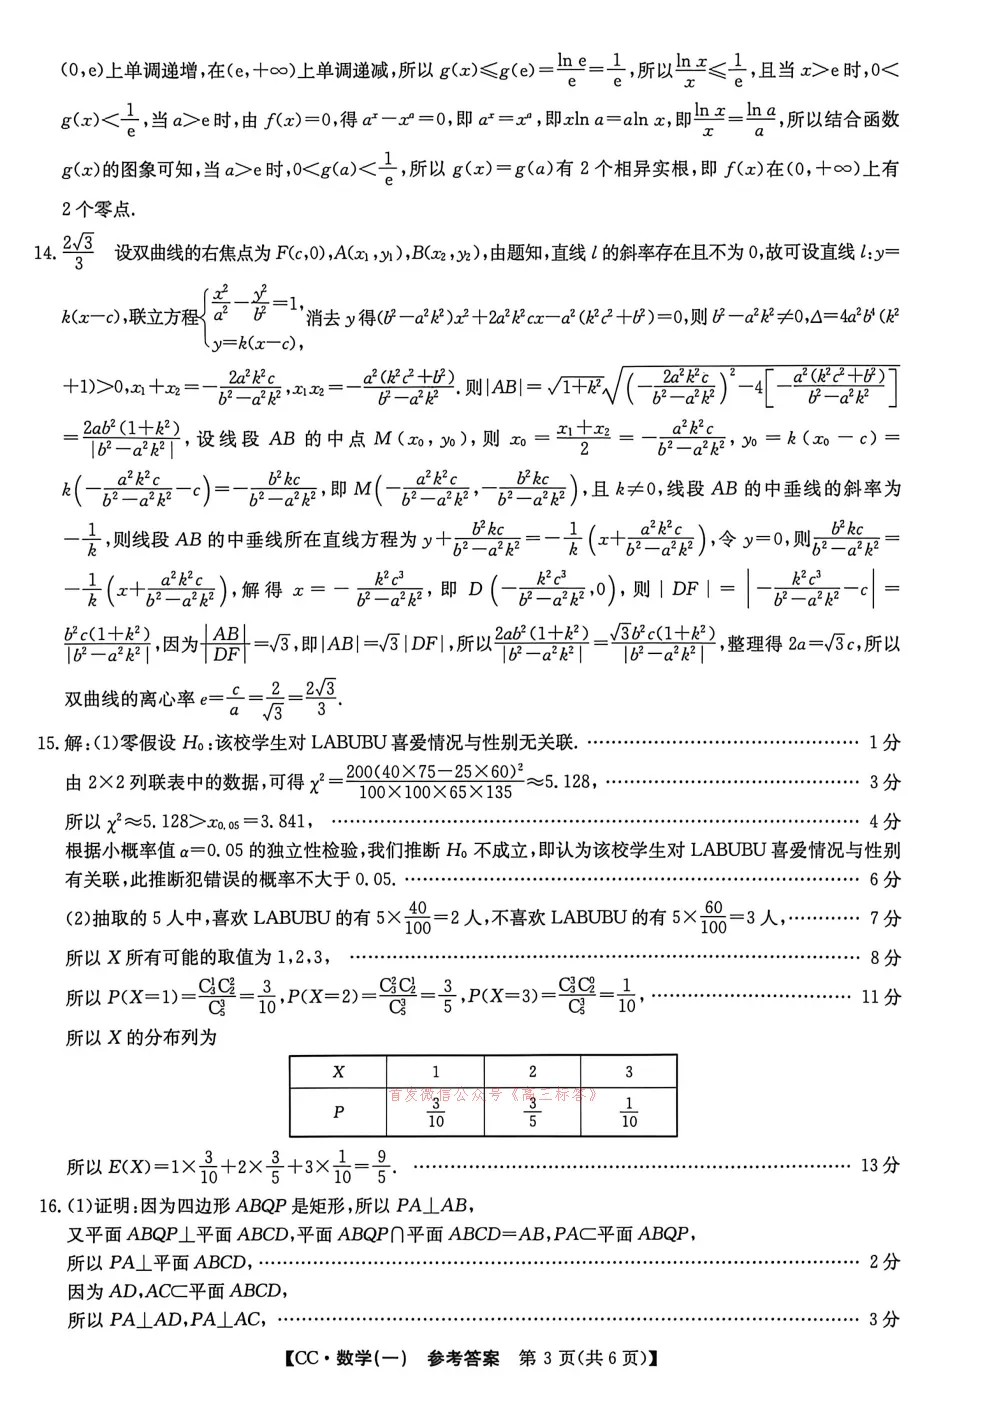 (0,e)上单调递增,在(e,+∞)上单调递减,所以 g(x)≤g(e)=ln e/e=1/e,所以ln x/x≤1/e,且当 x>e 时,0<
g(x)<1/e,当 a>e 时,由 f(x)=0,得 aˣ-xᵃ=0,即 aˣ=xᵃ,即xln a=aln x,即ln x/x=ln a/a,所以结合函数
g(x)的图象可知,当 a>e 时,0<g(a)<1/e,所以 g(x)=g(a)有 2 个相异实根,即 f(x)在(0,+∞)上有
2 个零点.
14. 2√3/3 设双曲线的右焦点为 F(c,0),A(x₁,y₁),B(x₂,y₂),由题知,直线 l 的斜率存在且不为 0,故可设直线 l:y=
k(x-c),联立方程{x²/a²-y²/b²=1, y=k(x-c), 消去 y 得(b²-a²k²)x²+2a²k²cx-a²(k²c²+b²)=0,则 b²-a²k²≠0,Δ=4a²b⁴(k²
+1)>0,x₁+x₂=-2a²k²c/(b²-a²k²),x₁x₂=-a²(k²c²+b²)/(b²-a²k²).则|AB|=√(1+k²)√((-2a²k²c/(b²-a²k²))²-4[-a²(k²c²+b²)/(b²-a²k²)])
=2ab²(1+k²)/|b²-a²k²|,设线段 AB 的中点 M(x₀,y₀),则 x₀=(x₁+x₂)/2=-a²k²c/(b²-a²k²),y₀=k(x₀-c)=
k(-a²k²c/(b²-a²k²)-c)=-b²kc/(b²-a²k²),即 M(-a²k²c/(b²-a²k²),-b²kc/(b²-a²k²)),且 k≠0,线段 AB 的中垂线的斜率为
-1/k,则线段 AB 的中垂线所在直线方程为 y+b²kc/(b²-a²k²)=-1/k(x+a²k²c/(b²-a²k²)),令 y=0,则b²kc/(b²-a²k²)=
-1/k(x+a²k²c/(b²-a²k²)),解得 x=-k²c³/(b²-a²k²),即 D(-k²c³/(b²-a²k²),0),则|DF|=|-k²c³/(b²-a²k²)-c|=
b²c(1+k²)/|b²-a²k²|,因为|AB|/|DF|=√3,即|AB|=√3|DF|,所以2ab²(1+k²)/|b²-a²k²|=√3b²c(1+k²)/|b²-a²k²|,整理得 2a=√3c,所以
双曲线的离心率 e=c/a=2/√3=2√3/3.
15. 解:(1)零假设 H₀:该校学生对 LABUBU 喜爱情况与性别无关联. ………… 1 分
由 2×2 列联表中的数据,可得 χ²=200(40×75-25×60)²/(100×100×65×135)≈5.128, ………… 3 分
所以 χ²≈5.128>x₀.₀₅=3.841, ………… 4 分
根据小概率值 α=0.05 的独立性检验,我们推断 H₀ 不成立,即认为该校学生对 LABUBU 喜爱情况与性别
有关联,此推断犯错误的概率不大于 0.05. ………… 6 分
(2)抽取的 5 人中,喜欢 LABUBU 的有 5×40/100=2 人,不喜欢 LABUBU 的有 5×60/100=3 人, ………… 7 分
所以 X 所有可能的取值为 1,2,3, ………… 8 分
所以 P(X=1)=C₃¹C₂²/C₅³=3/10,P(X=2)=C₃²C₂¹/C₅³=3/5,P(X=3)=C₃³C₂⁰/C₅³=1/10, ………… 11 分
所以 X 的分布列为
X 1 2 3
首发微信公众号《高三标答》
P 3/10 3/5 1/10
所以 E(X)=1×3/10+2×3/5+3×1/10=9/5. ………… 13 分
16. (1)证明:因为四边形 ABQP 是矩形,所以 PA⊥AB,
又平面 ABQP⊥平面 ABCD,平面 ABQP∩平面 ABCD=AB,PA⊂平面 ABQP,
所以 PA⊥平面 ABCD, ………… 2 分
因为 AD,AC⊂平面 ABCD,
所以 PA⊥AD,PA⊥AC, ………… 3 分
【CC·数学(一) 参考答案 第 3 页(共 6 页)】